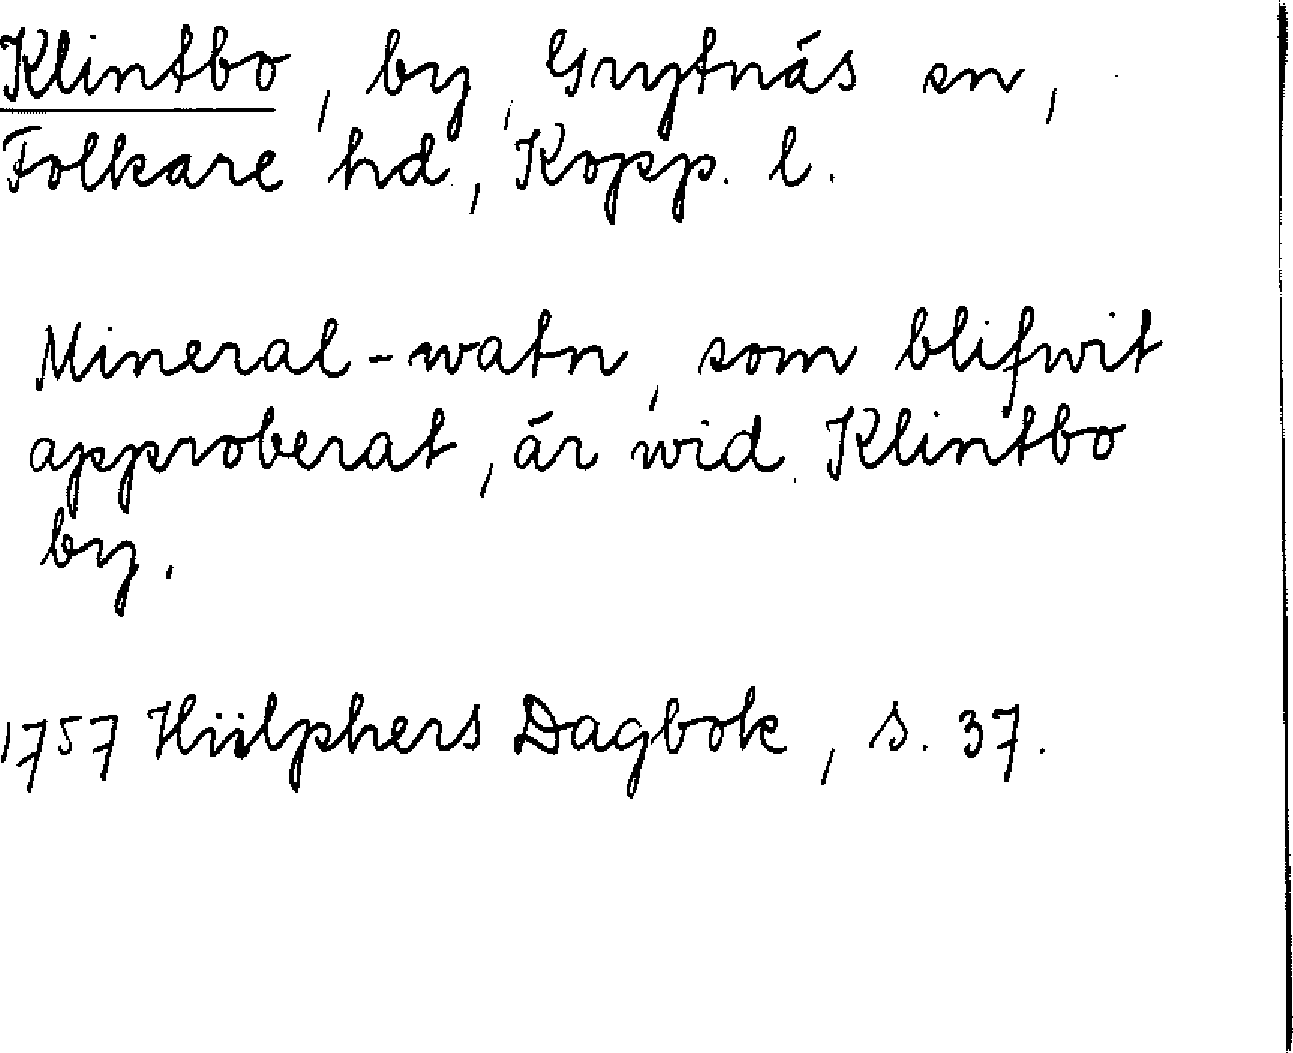 Klintbo, by, Grytnäs sn,
Folkare hd, Kopp. l.
Mineral-watn, som blifwit
approberat, är wid Klintbo
by.
1757 Hülphers Dagbok, s. 37.